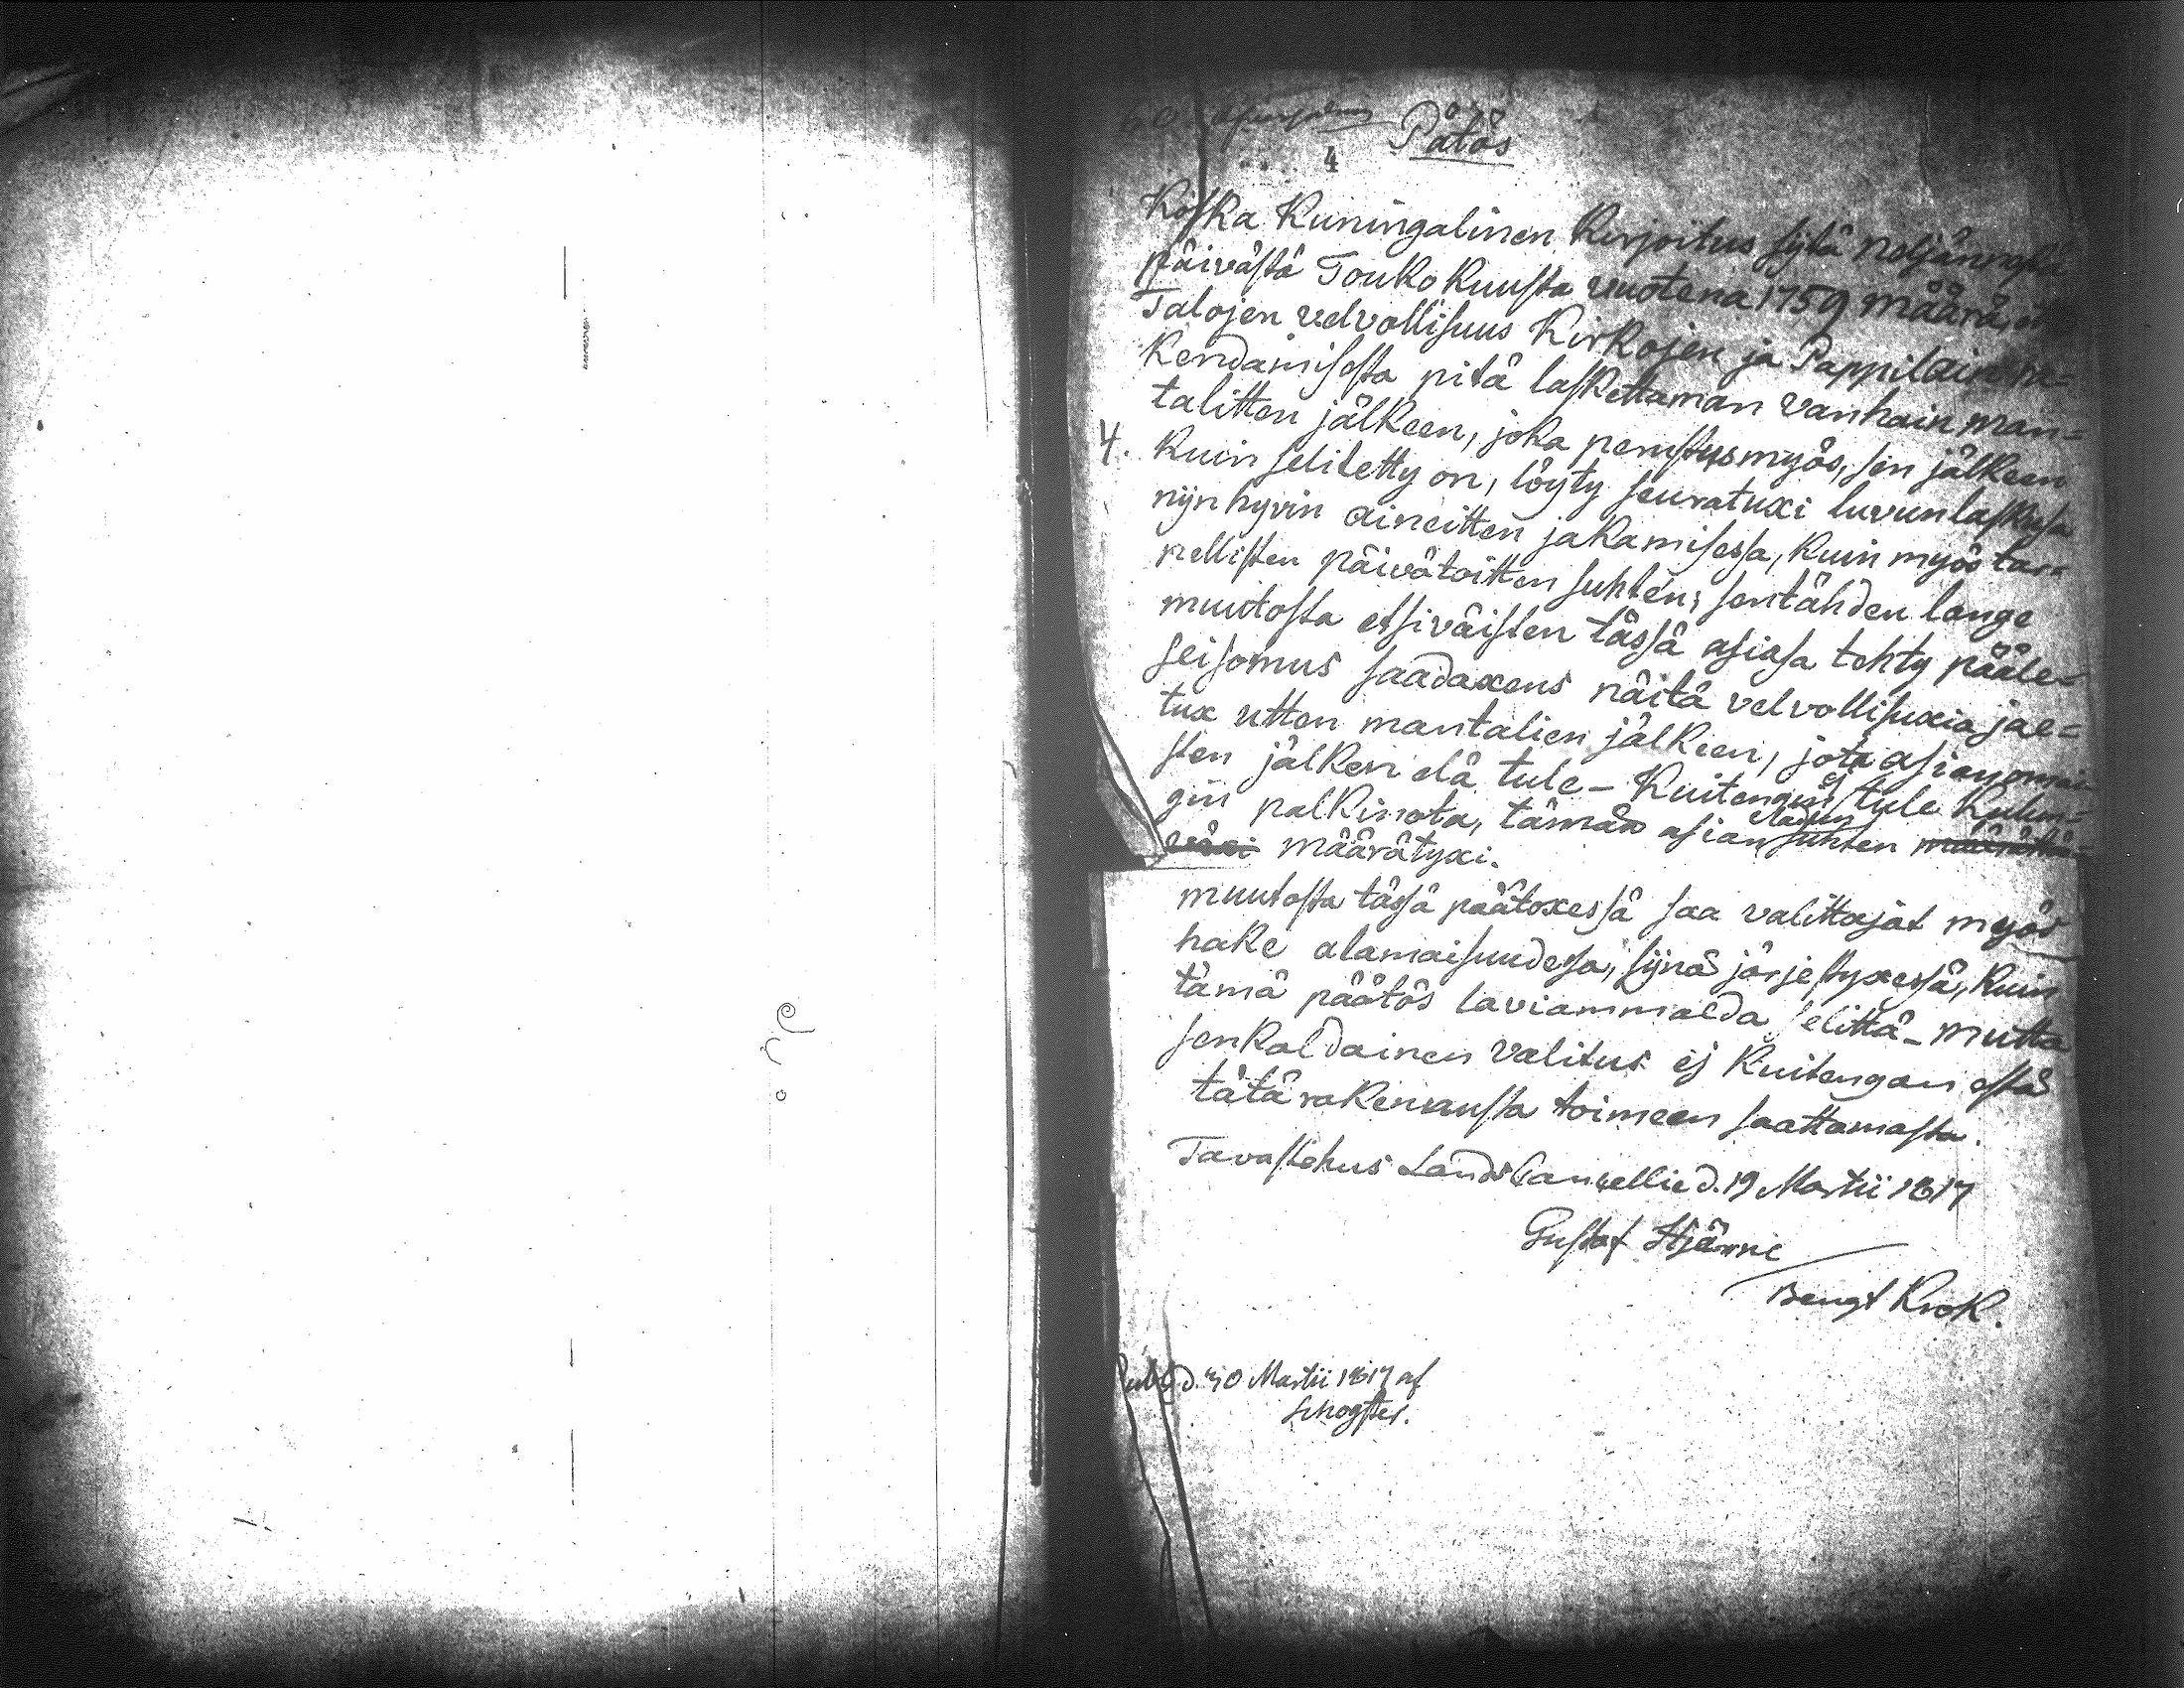 Pätös
4
Koska Kuningalinen Kirjoitus sytä neljännestä
päivästä Toukokuusta vuotena 1759 määrä, että
Talojen velvollisuus Kirkojen ja Pappilain ra-
kendamisesta pitä laskettaman vanhain man=
talitten jälkeen, joka perustus myös, sen jälkeen
4. Kuin selitetty on, löyty seuratuxi luvunlaskusa
nijn hyvin aineitten jakamisessa, kuin myös tar=
pellisten päivätoitten suhten; sentähden lange
muutosta etsiväisten tässä asiasa tehty pääle=
seisomus saadaxens näitä velvollisuxia jae=
tux utten mantalien jälkeen, jota asianomai-
sten jälken elä tule - Kuitengin ej tule kulun=
gin palkinota, tämän asian suhten määrättä=
växi määrätyxi.
muutosta tässä päätoxessä saa valittajat myös
hake alamaisuudessa, sijnä järjestyxessä, kuin
tämä päätös laviammalda selittä - mutta
senkaldainen valitus ej kuitengan estä
tätä rakennusta toimeen saattamasta.
Tavastehus LandsCancellie d. 19 Martii 1817
Gustaf Hjärne
Bengt Krok.
Publ. d. 30 Martii 1817 af